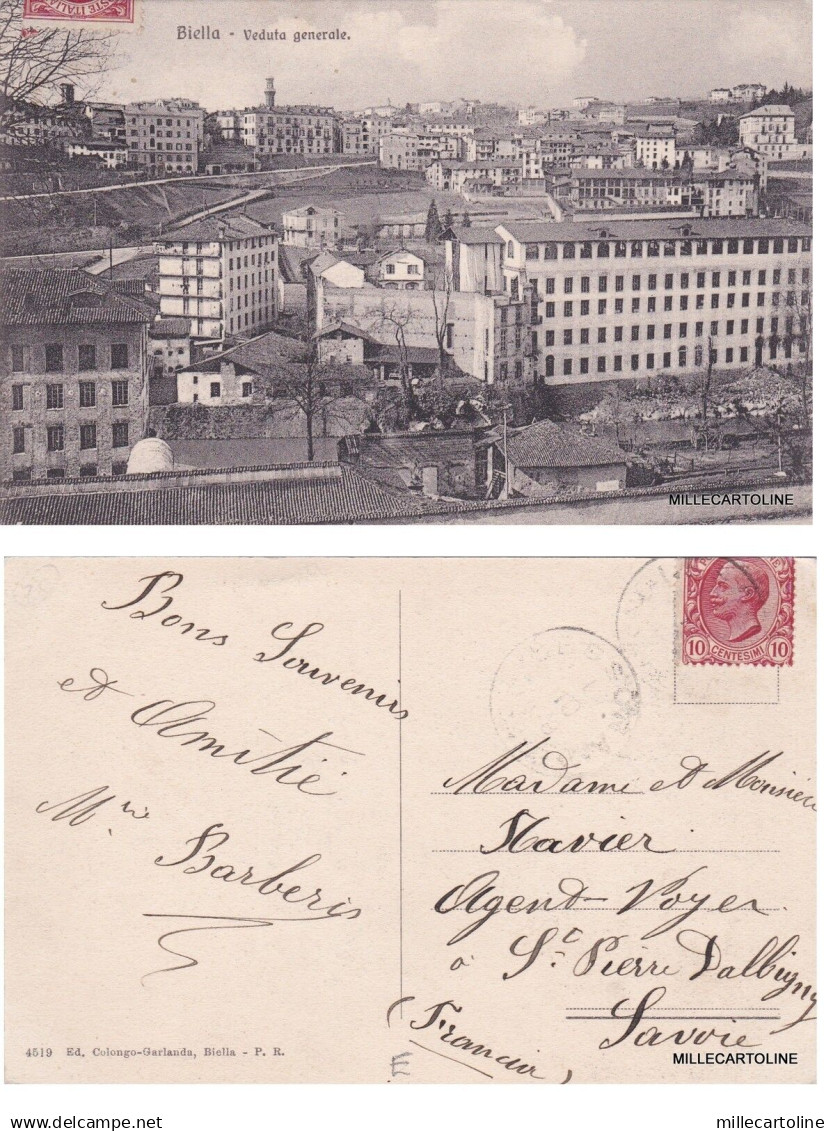 Biella - Veduta generale.
MILLECARTOLINE
Bons Souvenirs
et Amitié
Mme Barberis
10 CENTESIMI 10
Madame et Monsieur
Navier
Agent-Voyer
à St Pierre Dalbigny
Savoie
(Francia)
4519 Ed. Colongo-Garlanda, Biella - P. R.
E
MILLECARTOLINE
delcampe.net
millecartoline